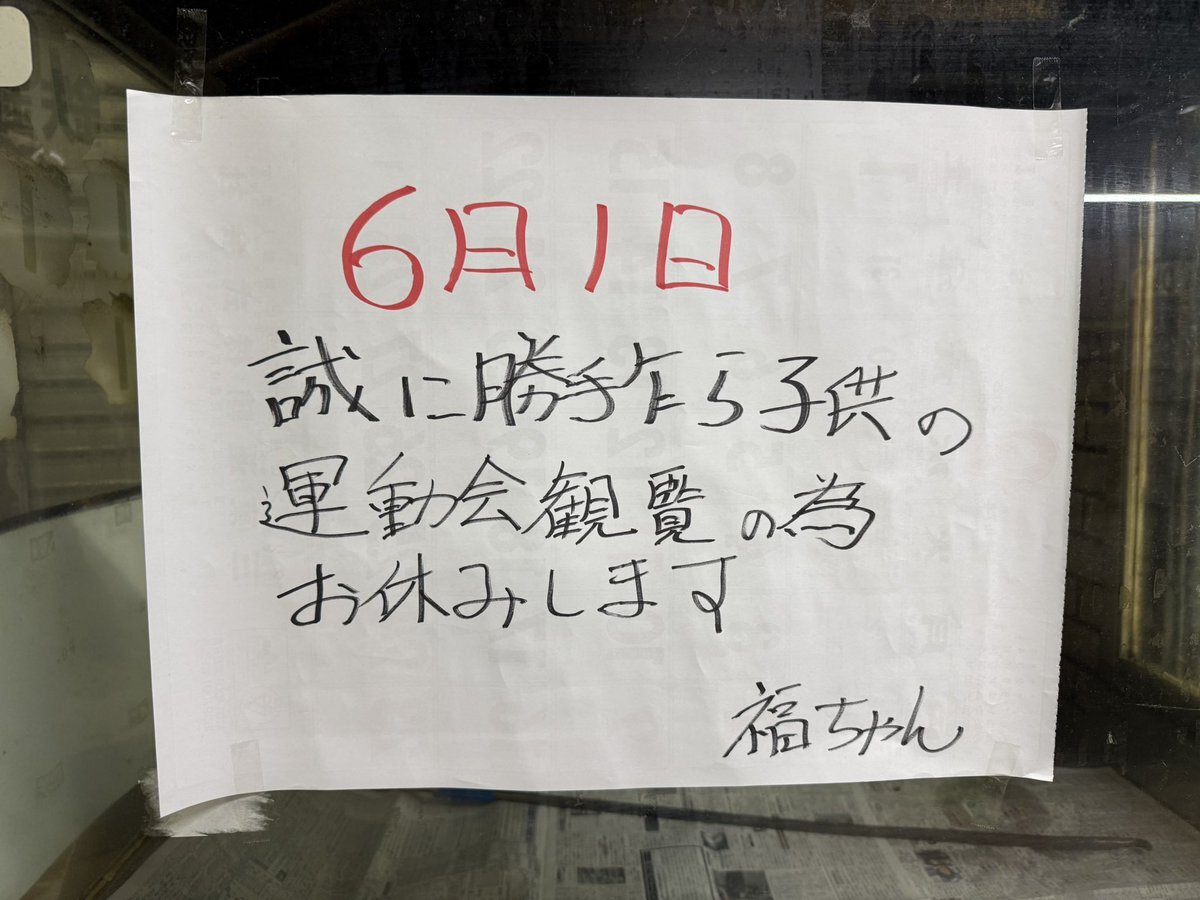 6月1日
誠に勝手乍ら子供の
運動会観覧の為
お休みします
福ちゃん